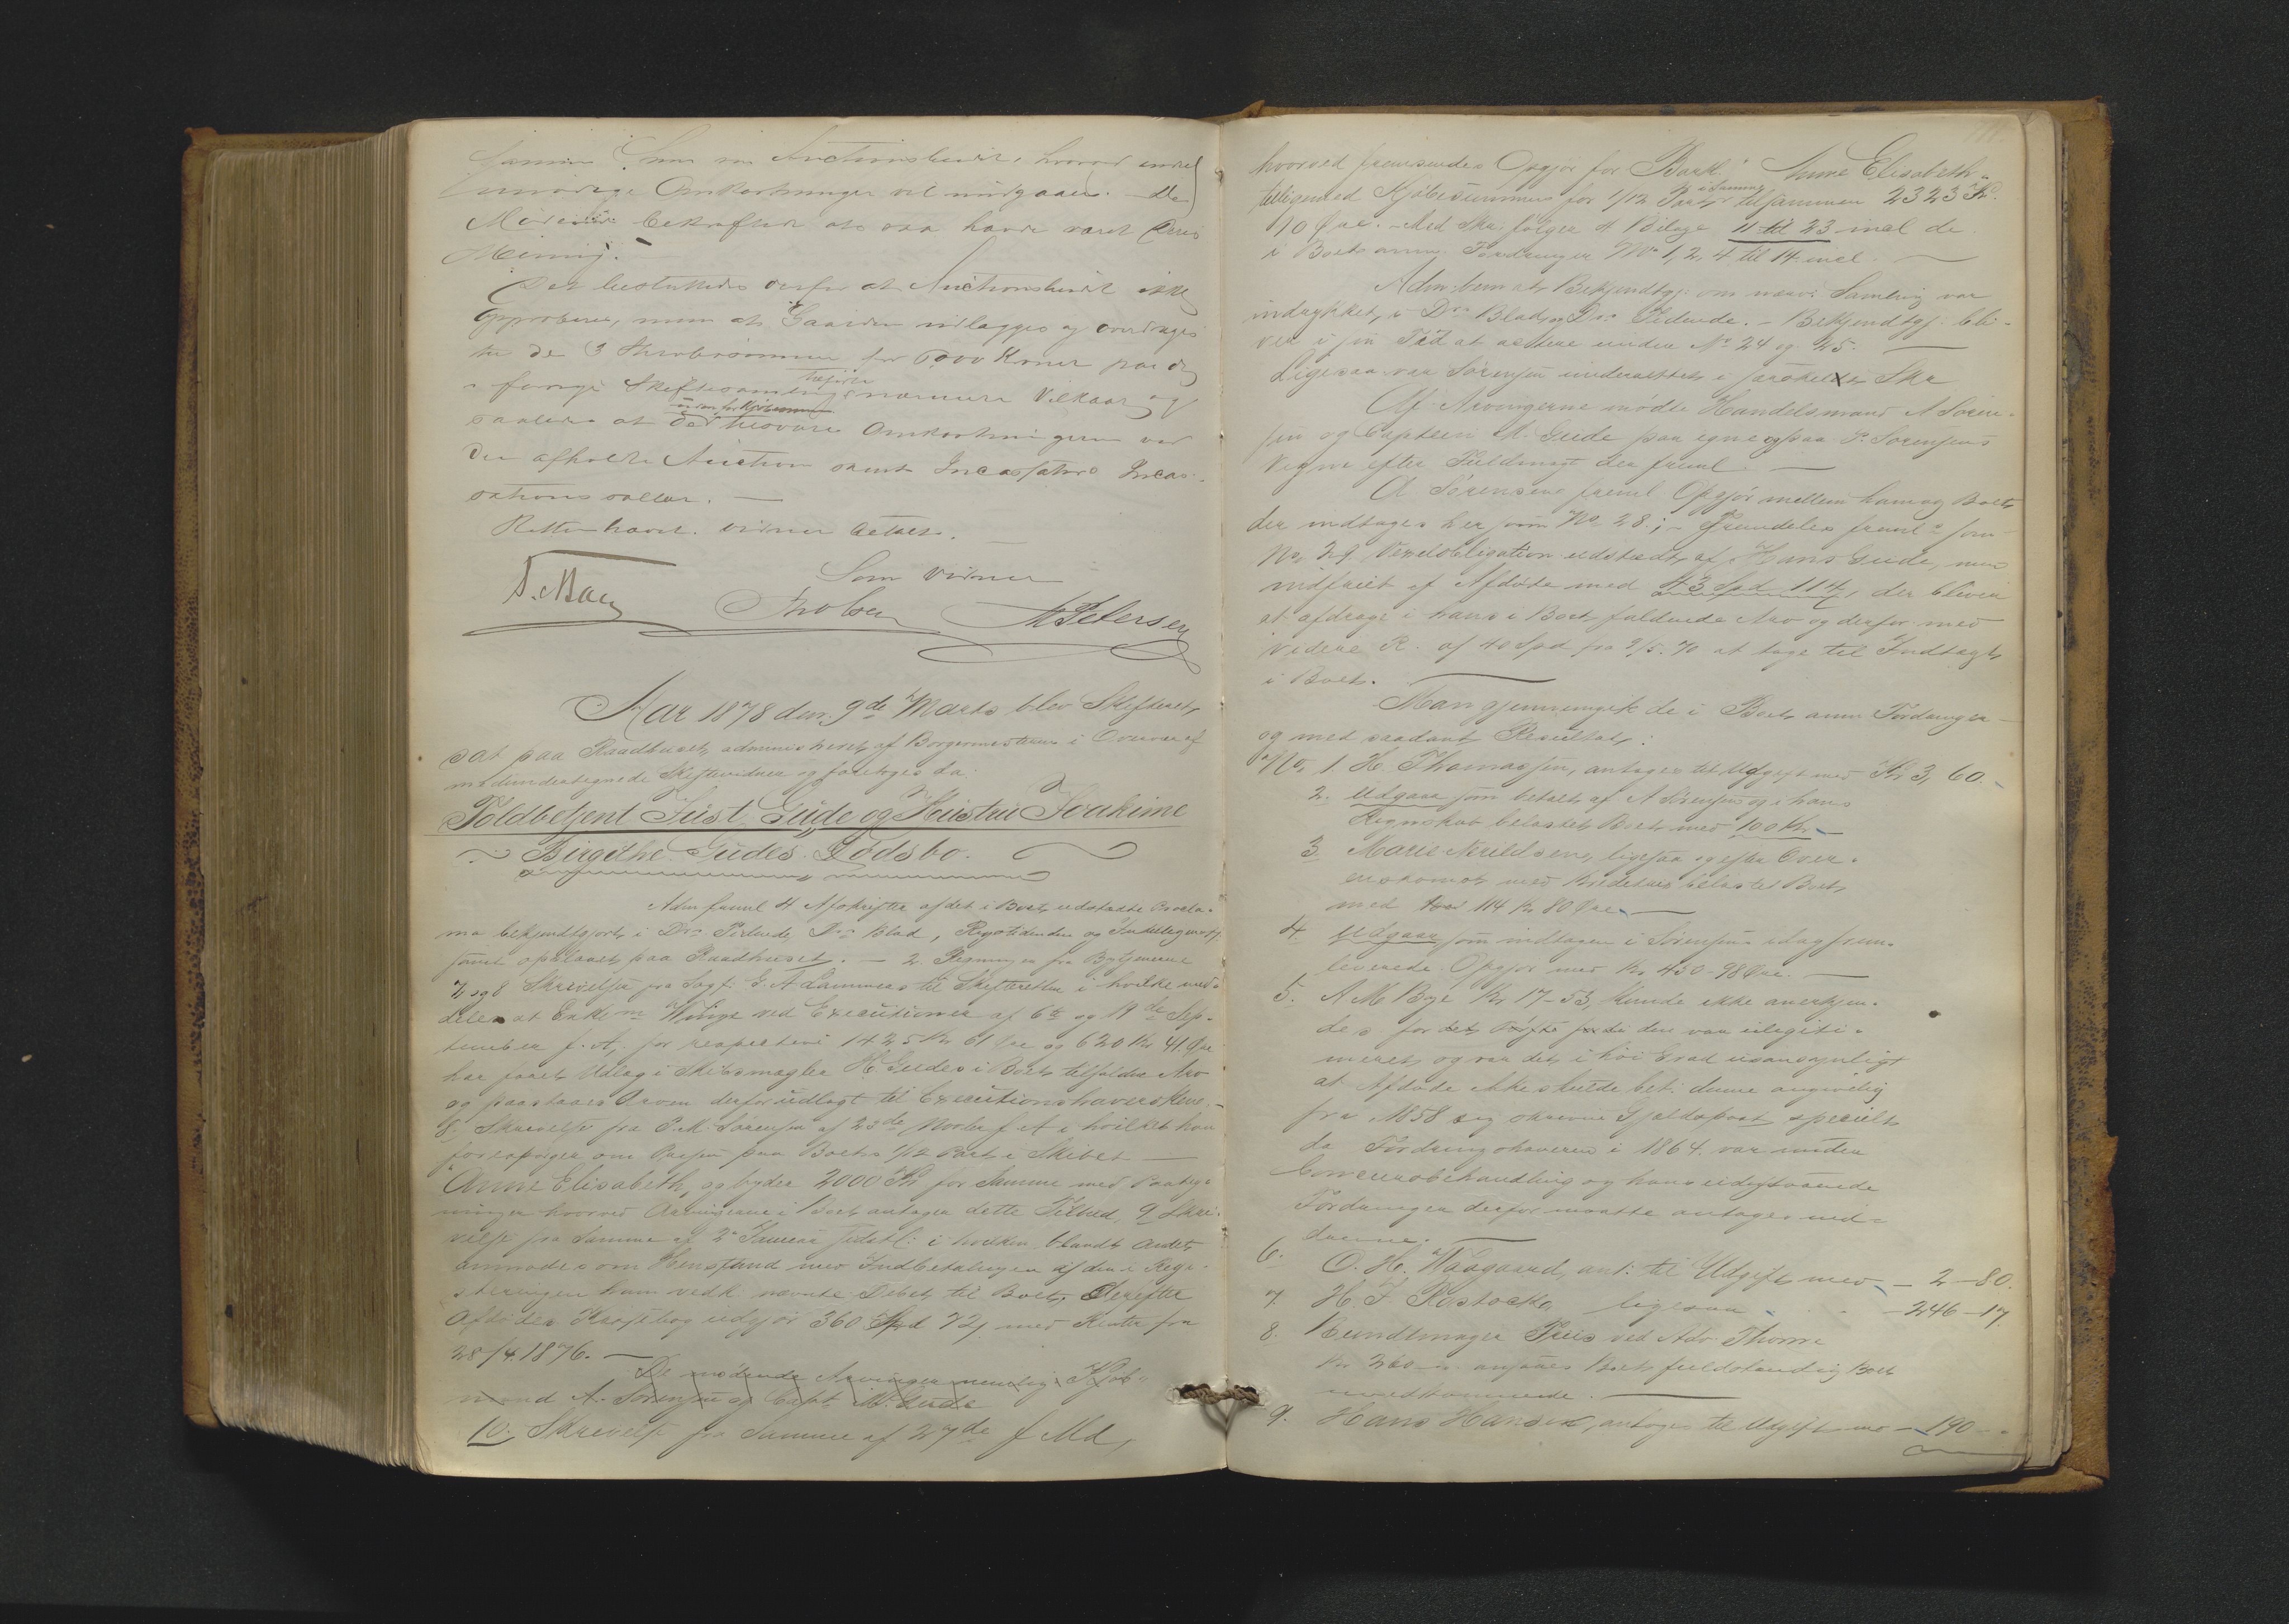 samme Sum som Auctionsbudet, hvorved endel
unødige Omkostninger vil undgaaes. De
Mødende bekræftede at saa havde været deres
Mening.
Det besluttedes derfor at Auctionsbudet ikke
approberes, men at Gaarden udlægges og overdrages
til de 3 for 6000 Kroner paa de
i forrige Skiftesamling tilførte nærmere Vilkaar og
saaledes at de udrede Omkostningerne ved
den afholdte Auction samt Incassations
sallær.
Retten hævet. vidner betalt.
Som vidner
M Petersen
Aar 1878 den 9de Marts blev Skifteret
sat paa Raadhuset, administreret af Borgermesteren i Overvær af
medundertegnede Skiftevidner og foretoges da:
Toldbetjent Just Gude og Hustru Joakime
Birgithe Gudes Dødsbo.
Adm freml 4 Afskrifter af det i Boet udstædte Procla-
ma bekjendtgjort i Drs Tidende, Drs Blad, Rigstidenden og Intelligens
samt opslaaet paa Raadhuset. — 2 Regninger fra Bytjenerne
7 og 8 Skrivelse fra Sagf. G. A Lammers til Skifteretten i hvilke med-
deles at Enkem Winge ved Executioner af 6te og 19de Sep-
tember f. A. for respective 1425 Kr 61 Øre og 620 Kr 41 Øre
har faaet Udlæg i Skibsmægler H. Gudes i Boet tilfaldne Arv
og paastaaes Arven derfor udlagt til Executionshaverskene. —
8 Skrivelse fra P. M. Sørensen af 23de Novbr f A i hvilket han
forespørger om Prisen paa Boets 1/12 Part i Skibet —
"Anne Elisabeth" og byder 2000 Kr for Samme med Paateg-
ninger hvorved Arvingerne i Boet antager dette Tilbud. 9 Skri-
velse fra Samme af 2 Januar sidstl: i hvilken blandt Andet
anmodes om Henstand med Indbetalingen af den i Regi-
streringen ham vedk nævnte Debet til Boet, der efter
Afdødes Kassebog udgjør 360 Spd 72 med Renter fra
28/4 1876. —
De mødende Arvinger nemlig Kjøb-
mand A. Sørensen og Capt. M. Gude
10. Skrivelse fra Samme af 27de f Md,
hvorved fremsendes Opgjør for Bark "Anne Elisabeth"
tilligemed Kjøbesummen for 1/12 Part i Samme tilsammen 2323 Kr.
10 Øre. Med Skr følger 4 Bilage 11 til 23 incl de
i Boet anm. Fordringer No 1, 2, 4 til 14 incl. —
Adm. bem at Bekjendtgj. om nærv: Samling var
indrykket i Drs Blad og Drs Tidende. — Bekjendtgj. bli-
ver i sin Tid at actere under No 24 og 25. —
Ligesaa var Sørensen underrettet i særskilt Skr
Af Arvingerne mødte Handelsmand A Søren-
sen og Captein M. Gude paa egne og paa P. Sørensens
Vegne efter Fuldmagt der freml —
A Sørensen freml Opgjør mellem ham og Boet
der indtages her som No 28; — Fremdeles freml som
No 29 Vexelobligation udstædt af Hans Gude, men
indfriet af Afdøde med 43 Spd 114, der bliver
at afdrage i hans i Boet faldende Arv og derfor med
videre R. af 40 Spd fra 2/5 70 at tage til Indtægt
i Boet.
Man gjennemgik de i Boet anm Fordringer
og med saadant Resultat:
No 1. H. Thomassen, antages til Udgift med Kr 3, 60.
2. Udgaar som betalt af A Sørensen og i hans
Regnskab belastet Boet med 100 Kr —
3 Marie ligesaa og efter Over-
enskomst med belastet Boet
med 114 Kr 80 Øre. —
4 Udgaar som indtagen i Sørensens idag frem-
leverede Opgjør med Kr 450-98 Øre. —
5. A M Bye Kr 17-53, kunde ikke anerkjen-
des for den var ulegiti-
meret, og var det i høi Grad usandsynligt
at Afdøde ikke skulde bet: denne angivelig
fra 1858 sig skrivne Gjældspost specielt
da Fordringshaveren i 1864 var under
Concursbehandling og hans udestaaende
Fordringer derfor maatte antages ind-
drevne.
6. O. H. Waagaard, ant: til Udgift med — 2-80.
7. H. J Rostocks ligesaa — 246-17
8. Bundtmager Preus ved Adv. Thorne
Kr 260 — angaaes Boet fuldstændig Boet
uvedkommende. —
9. Hans Hansen, antages til Udgift med — 190 —